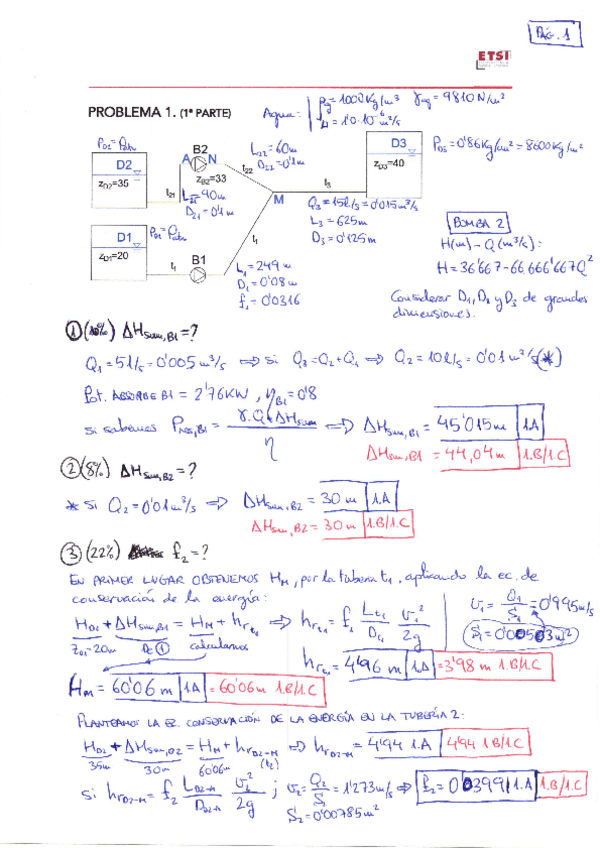 PÁG. 1
ETSI
PROBLEMA 1. (1ª PARTE)
Agua: ρ=1000Kg/m³ γag=9810N/m³
ν=1'0·10⁻⁶m²/s
PD2=Patm
D2
zD2=35
A
B2
N
zB2=33
t21
L21=40m
D21=0'1m
L22=60m
D22=0'1m
t22
M
t3
D3
zD3=40
PD3=0'86Kg/cm²=8600Kg/m²
Q3=15l/s=0'015m³/s
L3=625m
D3=0'125m
D1
zD1=20
PD1=Patm
t1
B1
t1
L1=249m
D1=0'08m
f1=0'0316
BOMBA 2
H(m)-Q(m³/s):
H=36'667-66666'667Q²
Considerar D1,D2 y D3 de grandes
dimensiones.
① (10%) ΔHsum,B1=?
Q1=5l/s=0'005m³/s ⇒ si Q3=Q2+Q1 ⇒ Q2=10l/s=0'01m³/s(*)
Pot. ABSORBE B1=2'76KW, ηB1=0'8
si sabemos Pabs,B1=γ·Q·ΔHsum/η ⇒ ΔHsum,B1=45'015m 1A
ΔHsum,B1=44,04m 1.B/1.C
② (8%) ΔHsum,B2=?
* si Q2=0'01m³/s ⇒ ΔHsum,B2=30m 1.A
ΔHsum,B2=30m 1.B/1.C
③ (22%) f2=?
EN PRIMER LUGAR OBTENEMOS HM, por la tubería t1, aplicando la ec. de
conservación de la energía:
HD1+ΔHsum,B1=HM+hrt1 ⇒ hrt1=f1 Lt1/Dt1 v1²/2g
v1=Q1/S1=0'995m/s
S1=0'00503m²
ZD1=20m De ① calculamos
hrt1=4'96m 1A =3'98m 1.B/1.C
HM=60'06m 1A =60'06m 1.B/1.C
PLANTEAMOS LA EC. CONSERVACIÓN DE LA ENERGÍA EN LA TUBERÍA 2:
HD2+ΔHsum,B2=HM+hrD2-M ⇒ hrD2-M=4'94 1.A 4'94 1.B/1.C
35m 30m 60'06m (t2)
si hrD2-M=f2 LD2-M/DD2-M v2²/2g ; v2=Q2/S2=1'273m/s ⇒ f2=0'0399 1.A 1.B/1.C
S2=0'00785m²